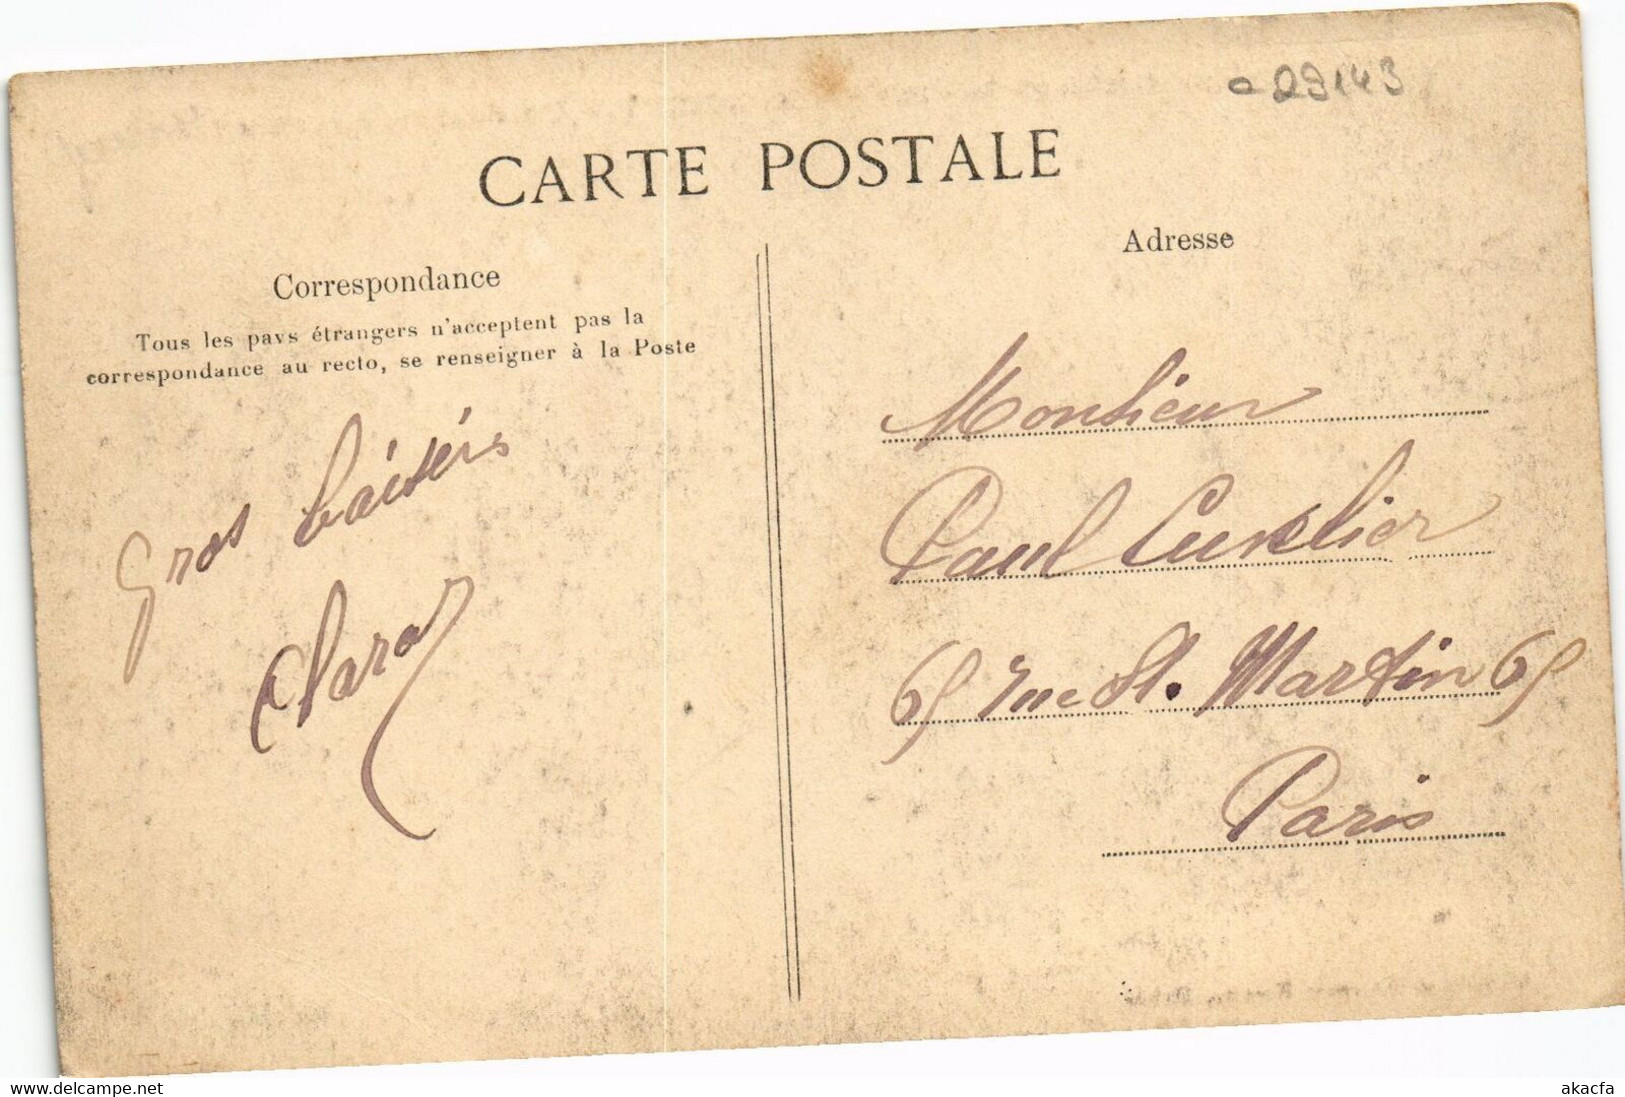 a 29143
CARTE POSTALE
Correspondance
Adresse
Tous les pays étrangers n'acceptent pas la
correspondance au recto, se renseigner à la Poste
Gros baisers
Clara
Monsieur
Paul Cuvelier
65 rue St. Martin 65
Paris
www.delcampe.net
akacfa